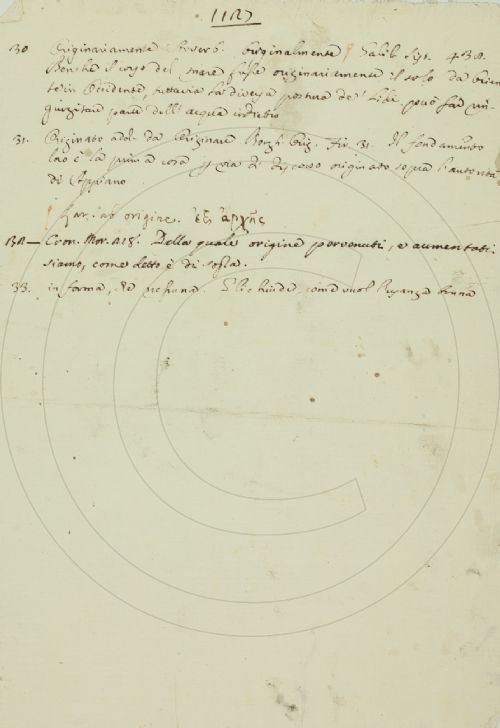 1127
30 Originariamente Avverb. Originalmente Galil. Sist. 438.
Benchè il corso del mare fusse originariamente il solo da Orien
te in Occidente, tuttavia la diversa postura de' Lidi può far rin-
gurgitare parte dell'acqua indietro
31. Originato add. da Originare Borgh. Orig. Fir. 31. Il fondamento
loro è la prima cosa per via di discorso originato sopra l'autorità
di Appiano
Lat. ab origine. ἐξ ἀρχῆς
Cron. Mor. 218. Della quale origine pervenuti, e aumentati
siamo, come detto è di sopra.
33. in forma, che